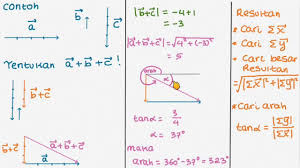 CONTOH
a⃗
b⃗
c⃗
Tentukan a⃗ + b⃗ + c⃗ !
b⃗ + c⃗
b⃗ + c⃗
a⃗ + b⃗ + c⃗
a⃗
|b⃗ + c⃗| = -4 + 1
= -3
|a⃗ + b⃗ + c⃗| = √4² + (-3)²
= 5
arah
α
tan α = 3/4
α = 37°
maka
arah = 360° - 37° = 323°
Resultan
• Cari Σx⃗
• Cari Σy⃗
• Cari besar
Resultan
= √|Σx⃗|² + |Σy⃗|²
• Cari arah
tan α = |Σy⃗|/|Σx⃗|